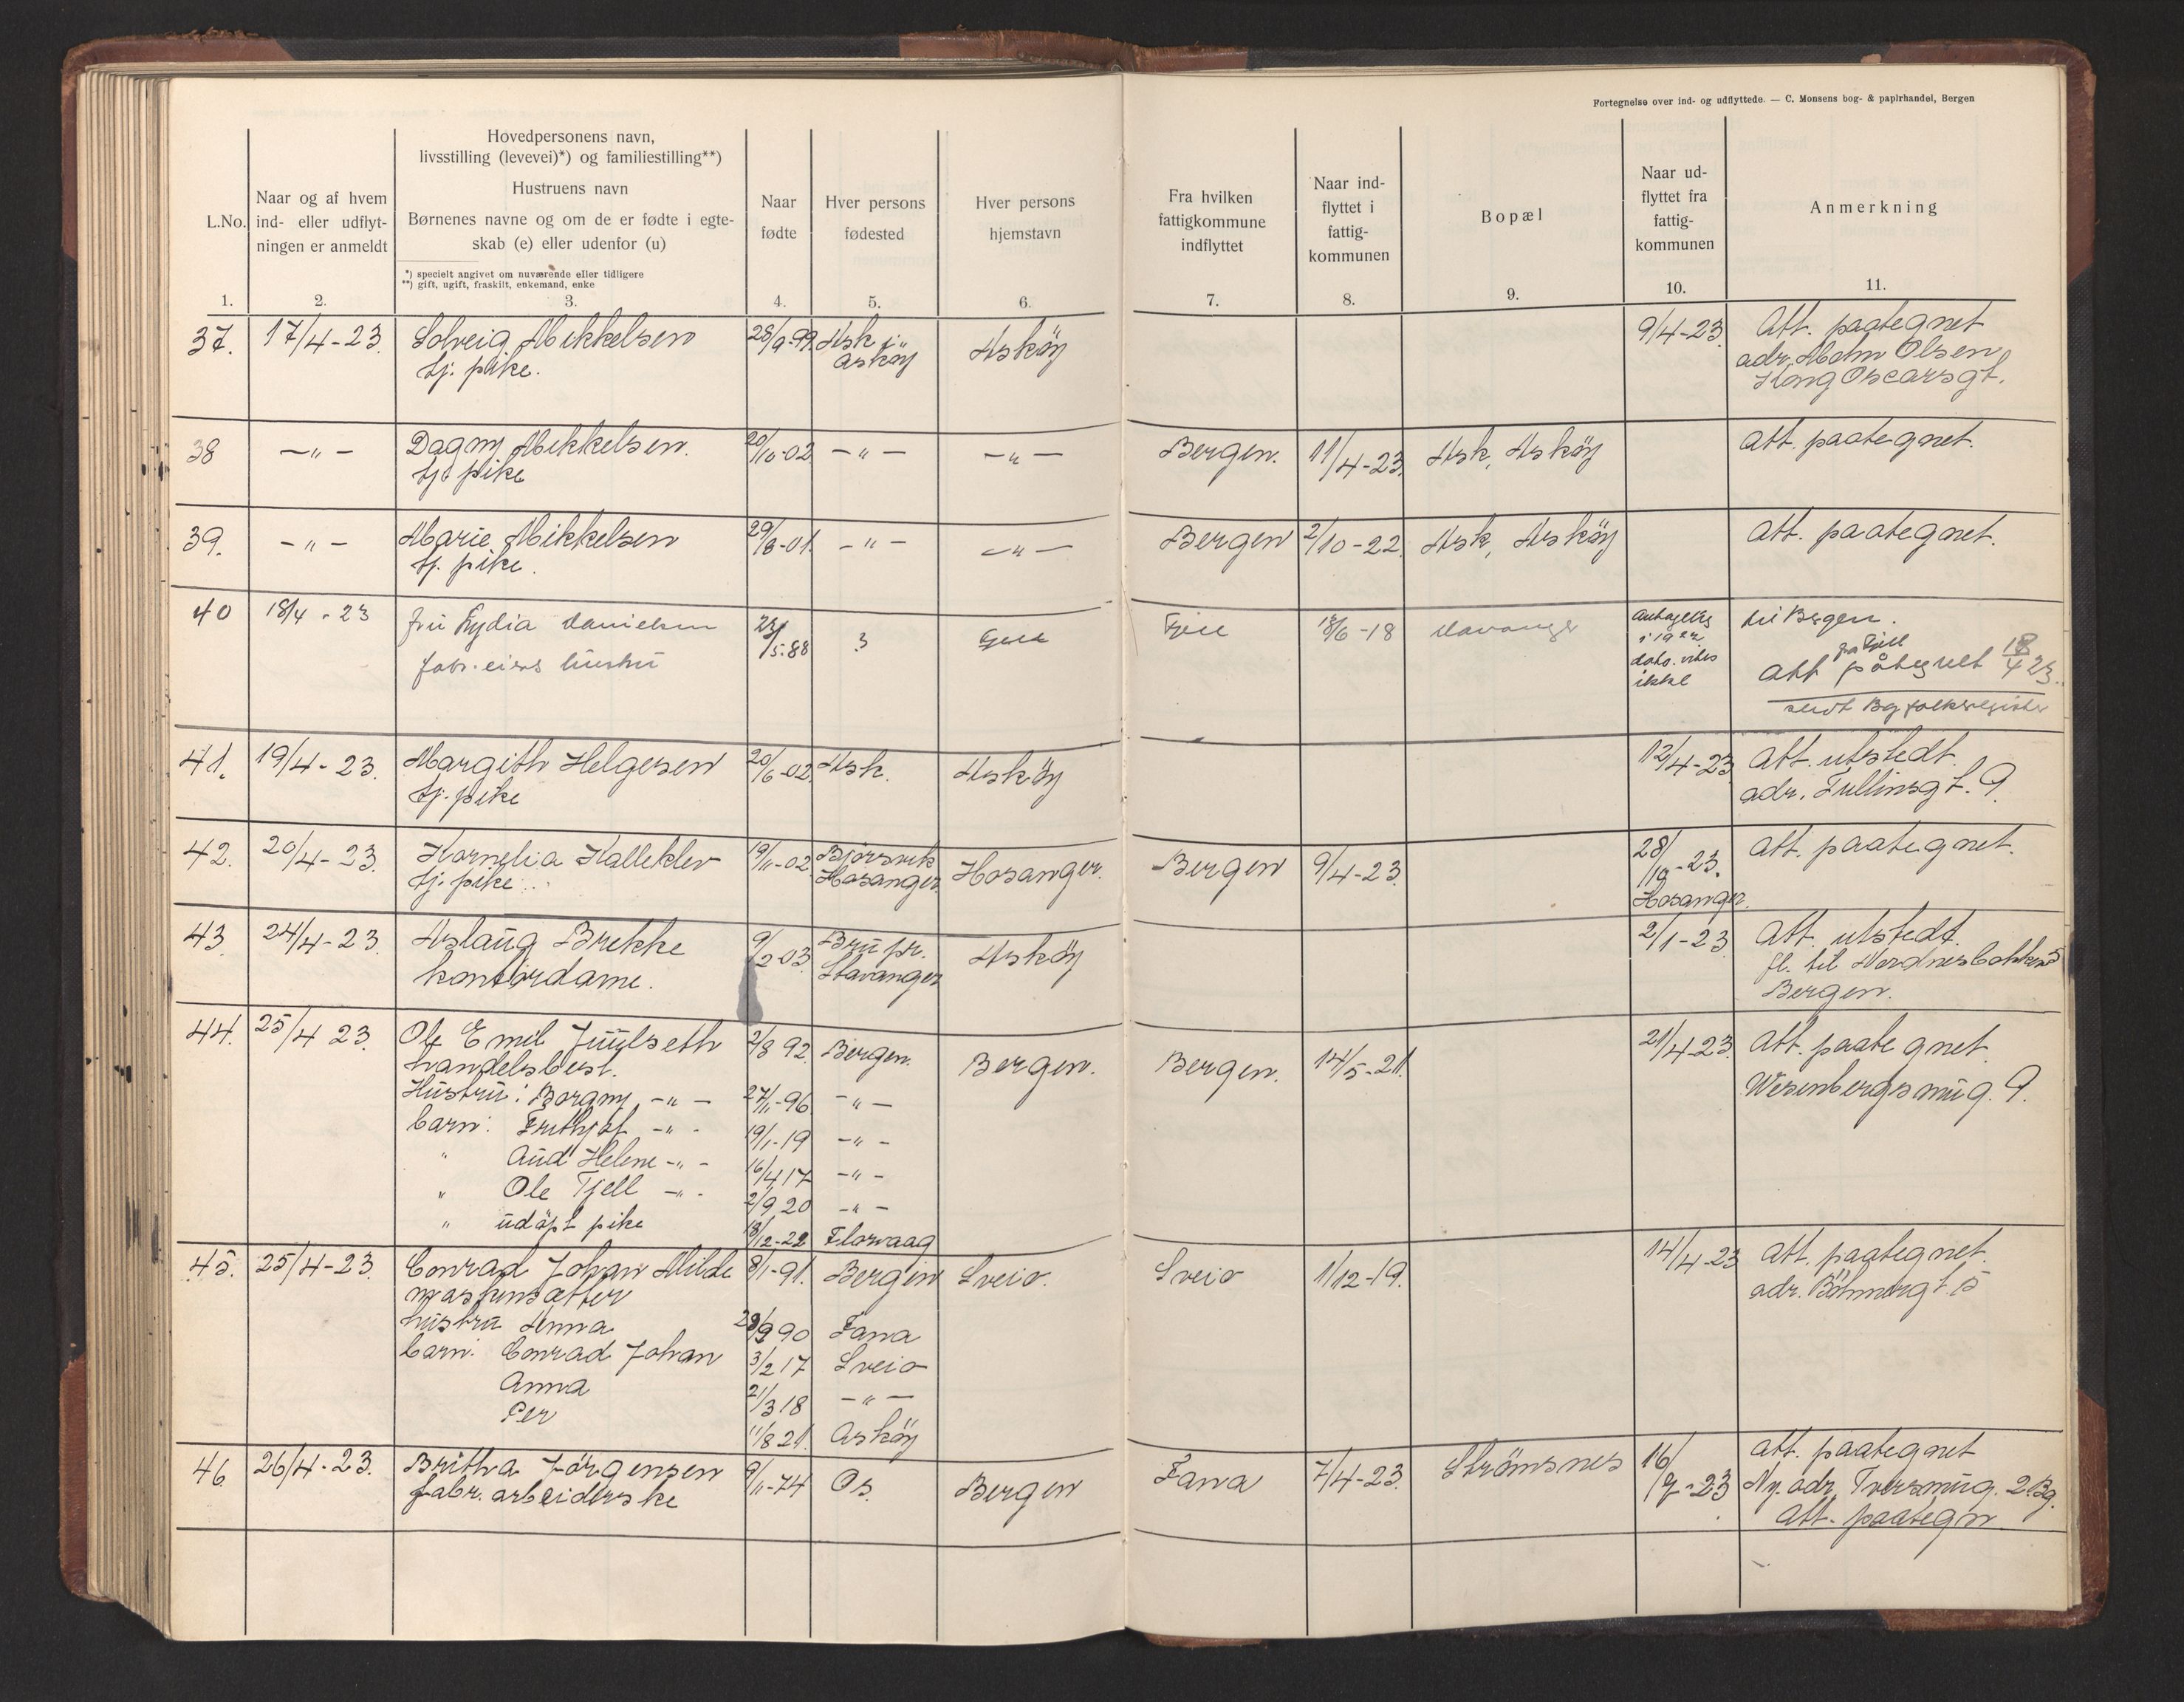 Fortegnelse over ind- og udflyttede. — C. Monsens bog- & papirhandel, Bergen
L.No.
1.
Naar og af hvem
ind- eller udflyt-
ningen er anmeldt
2.
Hovedpersonens navn,
livsstilling (levevei)*) og familiestilling**)
Hustruens navn
Børnenes navne og om de er fødte i egte-
skab (e) eller udenfor (u)
*) specielt angivet om nuværende eller tidligere
**) gift, ugift, fraskilt, enkemand, enke
3.
Naar
fødte
4.
Hver persons
fødested
5.
Hver persons
hjemstavn
6.
Fra hvilken
fattigkommune
indflyttet
7.
Naar ind-
flyttet i
fattig-
kommunen
8.
Bopæl
9.
Naar ud-
flyttet fra
fattig-
kommunen
10.
Anmerkning
11.
37. 17/4-23. Solveig Mikkelsen 28/9-99. Ask i Asköy 9/4-23. Att. paategnet
tj. pike. Asköy adr. Olsen
Kong Oscarsgt.
38 -"- Dagny Mikkelsen. 20/10-02 -"- -"- Bergen. 11/4-23. Ask, Asköy Att. paategnet.
tj. pike
39. -"- Marie Mikkelsen 29/8-01. -"- -"- Bergen 2/10-22. Ask, Asköy Att. paategnet.
tj. pike.
40 18/4-23 fru Lydia Danielsen 23/5-88 ? Fjell Fjell 18/6-18 antagelig til Bergen.
fabr. eiers hustru i 1922 fra Fjell
dato vites Att påtegnet 18/4 23.
ikke sendt Bg folkeregister
41. 19/4-23. Margith Helgesen 20/6-02 Ask. Asköy 12/4-23 Att. utstedt.
tj. pike adr. Tullinsgt. 9.
42. 20/4-23. Kornelia Kalleklev 19/11-02 Bjørsvik Hosanger. Bergen 9/4-23. 28/10-23. Att. paategnet.
tj. pike Hosanger Hosanger.
43. 24/4-23. Aslaug Brekke 9/2 03 Bru pr. Asköy 2/1-23 Att. utstedt.
kontordame. Stavanger fl. til Nordnesbakken 5
Bergen.
44. 25/4 23. Ole Emil Juulseth 2/8 92. Bergen. Bergen. Bergen. 14/5-21. 21/4-23. Att. paategnet.
handelsbest. Wesenbergsmug. 9.
Hustru: Borgny -"- 27/11-96 -"-
barn: Frithjof -"- 19/1-19 -"-
" Aud Helene -"- 16/4 17 -"-
" Ole Tjell -"- 2/9 20 -"-
" udöpt pike 18/12-22 Florvaag
45. 25/4-23. Conrad Johan Milde 8/1-91. Bergen Sveio. Sveio 1/12-19. 14/4-23 Att. paategnet.
maskinsætter adr. Böhmergt. 5
hustru Anna 90 Fana
barn: Conrad Johan 3/2 17 Sveio
Anna 21/3 18 -"-
Per 11/8 21. Asköy
46 26/4-23. Britha Jörgensen 9/11-74 Os. Bergen Fana 7/4-23. Strömsnes 16/7-23 Att. paategnet
fabr. arbeiderske Ny. adr. Tversmug. 2. Bg.
Att. paategn.